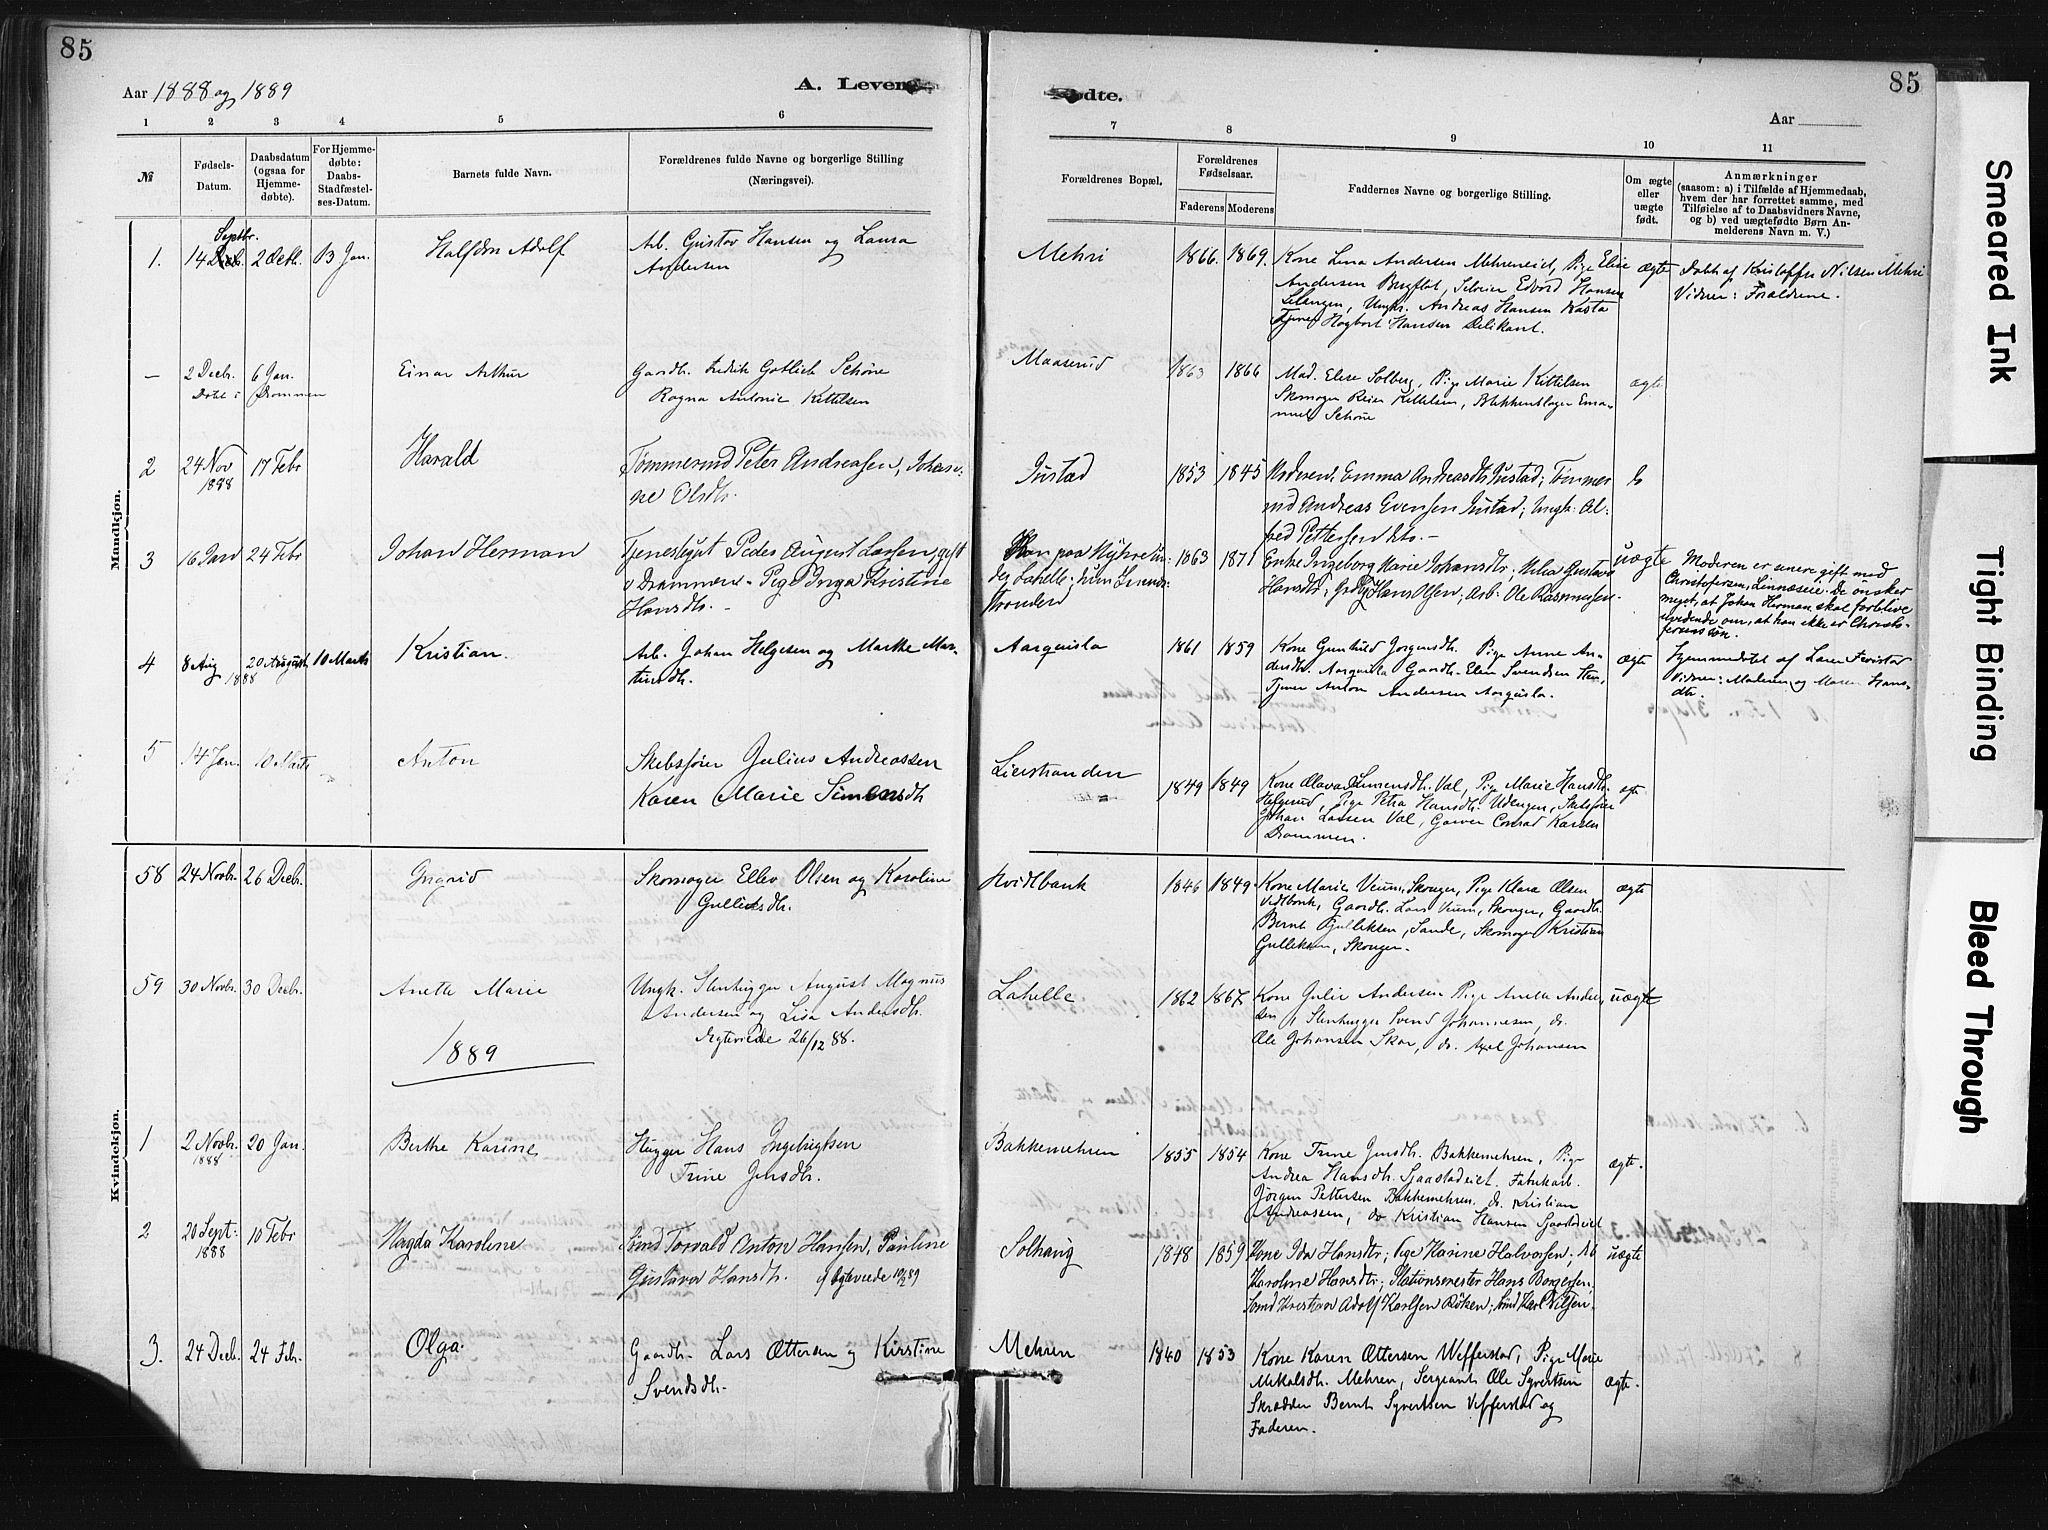 85
Aar 1888 og 1889
A. Leven
1 2 3 4 5 6
№
Fødsels-
Datum.
Daabsdatum
(ogsaa for
Hjemme-
døbte).
For Hjemme-
døbte:
Daabs-
Stadfæstel-
ses-Datum.
Barnets fulde Navn.
Forældrenes fulde Navne og borgerlige Stilling
(Næringsvei).
Mandkjøn.
Septbr.
1. 14 2 Octb. 13 Jan. Halfdan Adolf Arb. Gustav Hansen og Laura
Andersen
— 2 Decb. 6 Jan. Einar Arthur Gaardb. Fredrik Gotlieb Schöne
Døbt i Drammen Ragna Antonie Kittelsen
2 24 Nov 17 Febr Harald Tømmermd Peter Andreasen, Johan-
1888 ne Olsdtr.
3 16 Jan 24 Febr Johan Herman Tjenestegut Peder August Larsen, gift
Drammen - Pige Inga Kristine
Hansdtr. -
4 8 Aug 20 August 10 Marts Kristian. Arb. Johan Helgesen og Marthe Mar-
1888 tinsdtr.
5 14 Jan. 10 Marts Anton Skibsfører Julius Andreassen
Karen Marie Simensdtr
Kvindekjøn.
58 24 Novbr. 26 Decb. Ingrid Skomager Ellev Olsen og Karoline
Gulliksdtr.
59 30 Novbr. 30 Decb. Anette Marie Ungk. Stenhugger August Magnus
Andersen og Lisa Andersdtr.
Ægteviede 26/12 88.
1889
1 2 Novbr. 20 Jan. Berthe Karine Hugger Hans Ingebrigtsen
1888 Trine Jensdtr.
2 20 Sept: 10 Febr Magda Karoline Torvald Anton Hansen, Pauline
1888 Gustava Hansdtr. Ægteviede
3. 24 Decb. 24 Feb. Olga. Gaardb. Lars Ottersen og Kirstine
Svendsdtr.
85
ødte.
Aar
7 8 9 10 11
Forældrenes Bopæl.
Forældrenes
Fødselsaar.
Faderens Moderens
Faddernes Navne og borgerlige Stilling.
Om ægte
eller
uægte
født.
Anmærkninger
(saasom: a) i Tilfælde af Hjemmedaab,
hvem der har forrettet samme, med
Tilføielse af to Daabsvidners Navne,
og b) ved uægtefødte Børn An-
melderens Navn m. V.)
Mehri 1866. 1869. Kone Lina Andersen Mehreneiet, Pige Elise ægte Døbt af Kristoffer Nilsen Mehri
Andersen Bragflot, Edvard Hansen Vidner: Forældrene.
Ungk. Andreas Hansen Kasta
Tjener Hagbart Hansen Delikant.
Maaserud 1863 1866 Mad. Elise Solberg, Pige Marie Kittelsen ægte
Skomager Reier Kittelsen, Blikkenslager Ema-
nuel Schöne
Justad 1853 1845 Moderen, Emma Andreasdtr Justad; Tømmer-
md Andreas Evensen Justad; Ungk. Al-
fred Pettersen
1863 1871 Enke Ingeborg Marie Johansdtr; Gustava uægte Moderen er senere gift med
Hansdtr; Hans Olsen; Arb. Ole Rasmussen. Christofersen, Linnæseie. De ønsker
meget, at Johan Herman skal forblive
uvidende om, at han ikke er Christo-
fersens søn.
Aarquisla 1861 1859 Kone Gunhild Jørgensdtr. Pige Anne An- ægte Hjemmedøbt af Lars
dersdtr. Aarquisla Gaardb. Svendsen Vidner: Moderen og Maren Hans-
Tjener Anton Andersen Aarquisla. dtr.
Lierstranden 1849 1849 Kone Olava Simensdtr. Val, Pige Marie Hansdtr.
Helgerud, Pige Petra Hansdtr. Udengen, Skibsfører
Johan Larsen Val, Garver Conrad Karsen
Drammen.
Hvidtbank 1846 1849 Kone Marie Veum, Skouger, Pige Klara Olsen ægte
Gaardb. Lars Veum, Skouger, Gaardb.
Bernt Gulliksen, Sande, Skomager Kristian
Gulliksen, Skouger.
Lahelle 1862 1867 Kone Julie Andersen Pige Anette Ander- uægte
sen, Stenhugger Svend Johannesen, do.
Ole Johansen Skar, do. Axel Johansen
Bakkemehren 1855 1854 Kone Trine Jensdtr. Bakkemehren, Pige ægte.
Andrea Hansdtr. Sjaastadeiet. Fabrikarb.
Jörgen Pettersen Bakkemehren. do. Kristian
Andreassen, do Kristian Hansen
Solhaug 1848 1859 Kone Ida Hansdtr; Pige Karine Halvorsen; uægte
Karoline Hansdtr; Stationsmester Hans Borgersen;
Kristian Adolf Karlsen Røken; Karl Nilsen.
Mehren 1840 1853 Kone Karen Ottersen Wefferstad, Pige Marie ægte.
Mikalsdtr. Mehren, Sergeant Ole Syvertsen
Skrædder Bernt Syvertsen Vefferstad og
Faderen.
Smeared Ink
Tight Binding
Bleed Through